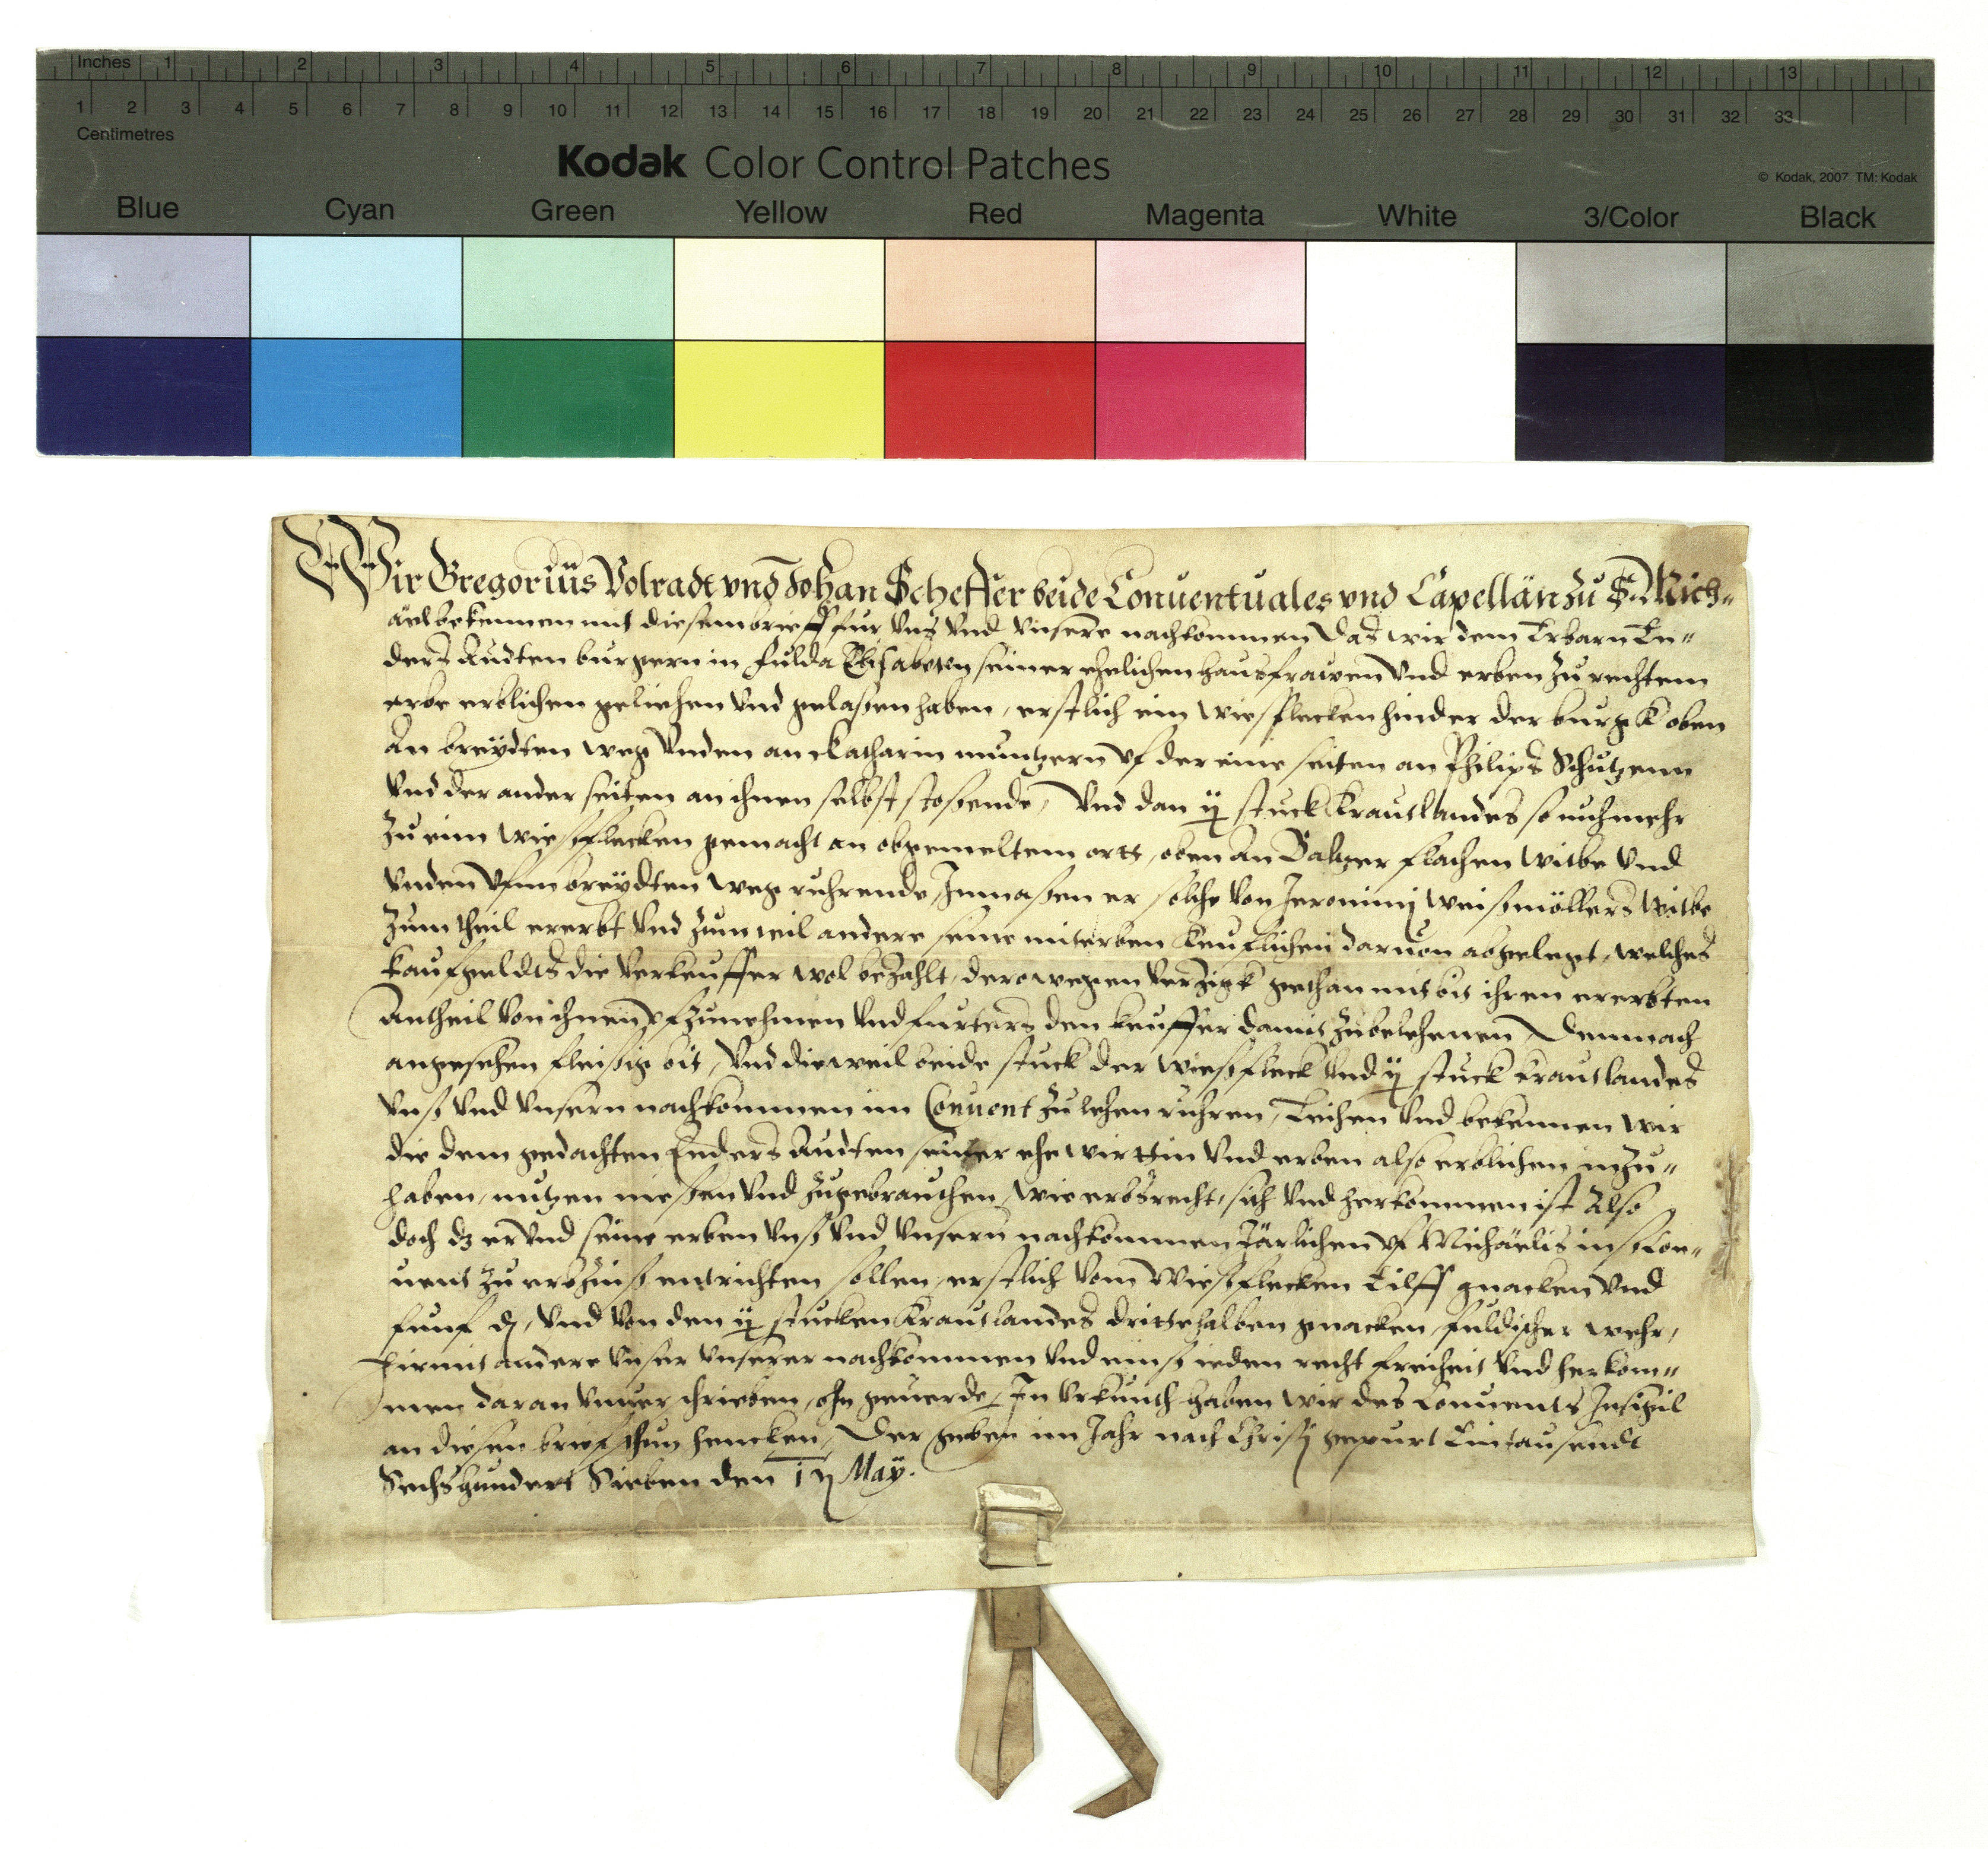 Inches 1 2 3 4 5 6 7 8 9 10 11 12 13
1 2 3 4 5 6 7 8 9 10 11 12 13 14 15 16 17 18 19 20 21 22 23 24 25 26 27 28 29 30 31 32 33
Centimetres
Kodak Color Control Patches
© Kodak, 2007 TM: Kodak
Blue Cyan Green Yellow Red Magenta White 3/Color Black
Wir Gregorius Volradt vnd Johan Scheffer beide Conuentuales vnd Capellän zu S. Mich-
äel bekennen mit diesem brieff fur vns vnd vnsere nachkommen Das wir dem Erbarn En-
ders Audten burgern in Fulda Elisabethen seiner ehelichen hausfrawen vnd erben zu rechtem
erbe erblichen geliehen vnd gelaßen haben, erstlich ein wiesflecken hinder der burgk oben
An breydten weg vnden an Katharin muntzern vf der eine seiten an Philips Schutzenn
vnd der ander seiten an ihnen selbst stoßende, Vnd dan ij stuck Krautlandes so nuhmehr
zu einn wießflecken gemacht an obgemeltem ortt, oben an Baltzer flachen witbe vnd
vnden vfm breydten weg ruhrende, Inmaßen er solche von Jeronimj weißmöllers witbe
zum theil ererbt vnd zum teil andere seine miterben keuflichen daruon abgelegt, welches
kaufgeldts die verkeuffer wol bezahlt, derowegen verzigk gethan mit bit ihren ererbten
Antheil von ihnen vfzunehmen vnd furters den keuffer damit zubelehenen, Demnach
angesehen fleißig bit, vnd dieweil beide stuck der wießfleck vnd ij stuck krautlandes
vnß vnd vnsern nachkommen im Conuent zu lehen ruhren, Leihen vnd bekennen wir
die dem gedachten Enders Audten seiner ehewirttin vnd erben also erblichen inzu-
haben, nutzen nießen vnd zugebrauchen, wie erbsrecht, sich vnd herkommen ist Also
doch dz er vnd seine erben vnß vnd vnsern nachkommen Järlichen vf Michäelis inß Con-
uent zu erbzinß entrichten sollen, erstlich vom Wießflecken Eilff gnacken vnd
funf d, vnd von den ij stucken Krautlandes drittehalben gnacken, fuldischer wehr,
hirmit andere vnser vnserer nachkommen vnd einß ieden recht freiheit vnd herkom-
men daran vnuerschrieben, ohn geuerde, In Vrkunth haben wir des Conuents Insigil
an diesen brief thun hencken, Der geben im Jahr nach Christj gepurt Eintausendt
Sechshundert Sieben den May.